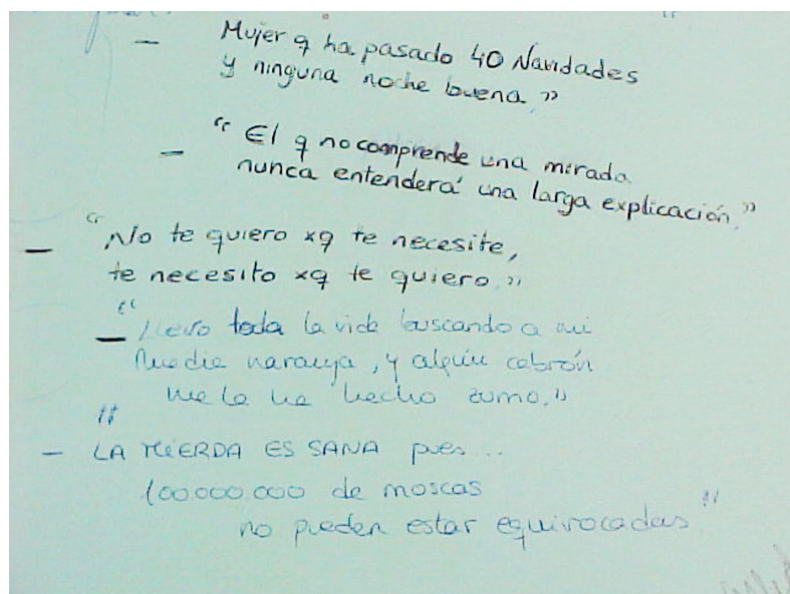 — Mujer q ha pasado 40 Navidades
y ninguna noche buena."
— "El q no comprende una mirada
nunca entenderá una larga explicación."
— "No te quiero xq te necesite,
te necesito xq te quiero."
— "Llevo toda la vida buscando a mi
media naranja, y alguien cabrón
me la ha hecho zumo."
"
— LA MIERDA ES SANA pues...
100.000.000 de moscas
no pueden estar equivocadas"